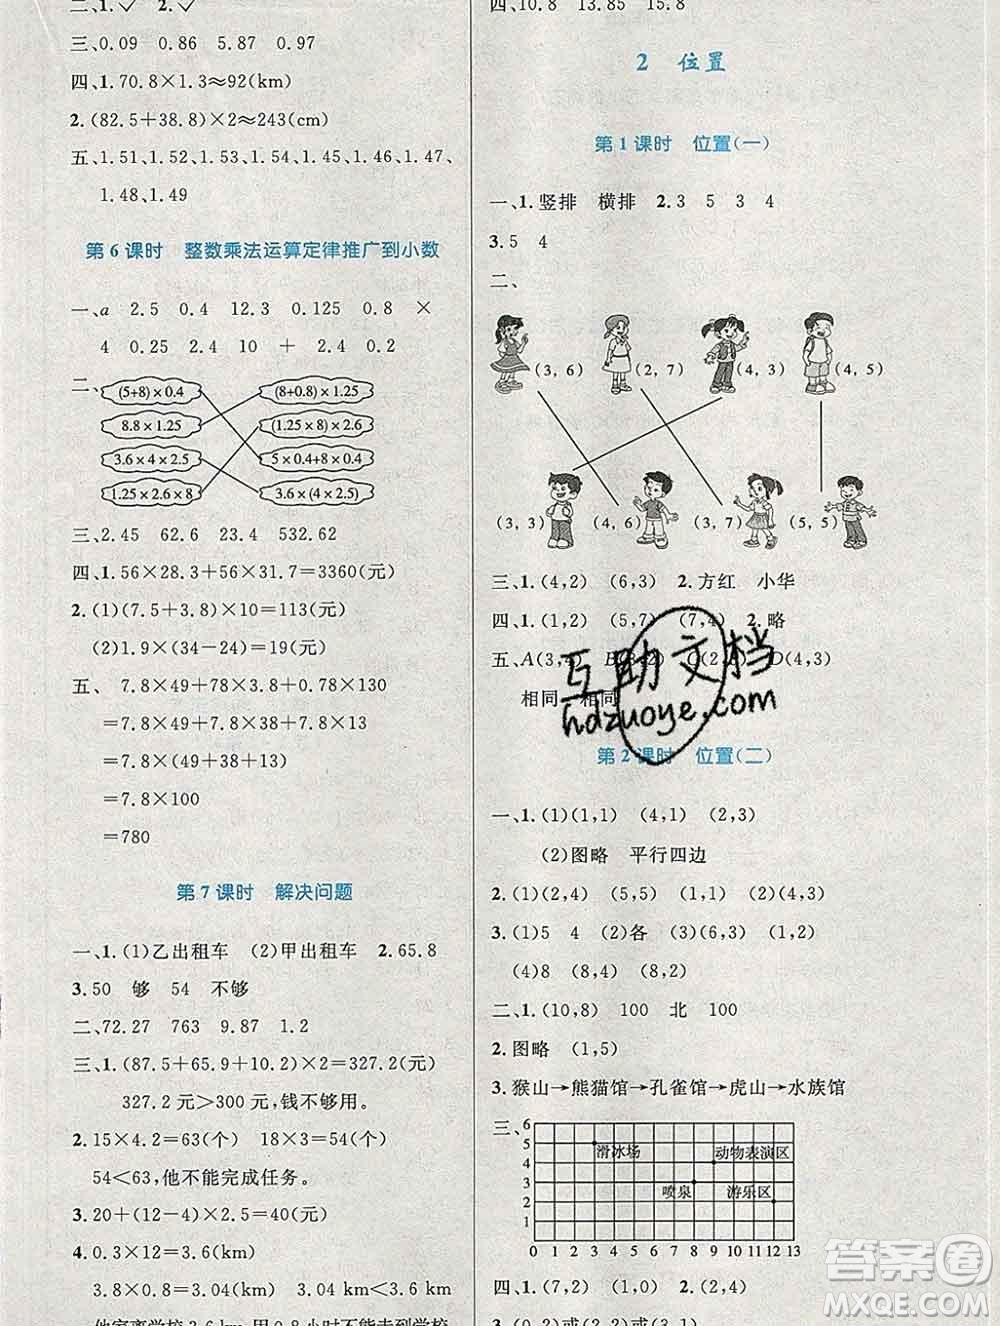 二、1.✓ 2.✓
三、0.09 0.86 5.87 0.97
四、1.70.8×1.3≈92(km)
2.(82.5+38.8)×2≈243(cm)
五、1.51、1.52、1.53、1.54、1.46、1.47、
1.48、1.49
第6课时 整数乘法运算定律推广到小数
一、a 2.5 0.4 12.3 0.125 0.8 ×
4 0.25 2.4 10 + 2.4 0.2
二、
(5+8)×0.4 (8+0.8)×1.25
8.8×1.25 (1.25×8)×2.6
3.6×4×2.5 5×0.4+8×0.4
1.25×2.6×8 3.6×(4×2.5)
三、2.45 62.6 23.4 532.62
四、1.56×28.3+56×31.7=3360(元)
2.(1)(7.5+3.8)×10=113(元)
(2)1.9×(34-24)=19(元)
五、 7.8×49+78×3.8+0.78×130
=7.8×49+7.8×38+7.8×13
=7.8×(49+38+13)
=7.8×100
=780
第7课时 解决问题
一、1.(1)乙出租车 (2)甲出租车 2.65.8
3.50 够 54 不够
二、72.27 763 9.87 1.2
三、1.(87.5+65.9+10.2)×2=327.2(元)
327.2元>300元,钱不够用。
2.15×4.2=63(个) 18×3=54(个)
54<63,他不能完成任务。
3.20+(12-4)×2.5=40(元)
4.0.3×12=3.6(km)
3.8×0.8=3.04(km) 3.04km<3.6km
他家离学校3.6km,用0.8小时不能走到学校
四、10.8 13.85 15.8
2 位置
第1课时 位置(一)
一、1.竖排 横排 2.3 5 3 4
3.5 4
二、
(3,6) (2,7) (4,3) (4,5)
(3,3) (4,6) (3,7) (5,5)
三、1.(4,2) (6,3) 2.方红 小华
四、1.(1,2) (5,7) (7,4) 2.略
五、A(3,4) B(3,2) C(2,3) D(4,3)
相同 相同
互助文档
hdzuoye.com
第2课时 位置(二)
一、1.(1)(1,1) (4,1) (2,3)
(2)图略 平行四边
2.(1)(2,5) (5,5) (1,2) (2)(4,3)
3.(1)5 4 (2)各 (3)(2,1) (1,2)
(4)8 (8,4) (8,2)
二、1.(10,8) 100 北 100
2.图略 (1,5)
3.猴山→熊猫馆→孔雀馆→虎山→水族馆
三、
6
5
4
3
2
1
滑冰场 动物表演区
喷泉 游乐区
0 1 2 3 4 5 6 7 8 9 10 11 12 13
四、1.(7,2) (1,0) 2.(2,4)
答案圈
MXQE.COM